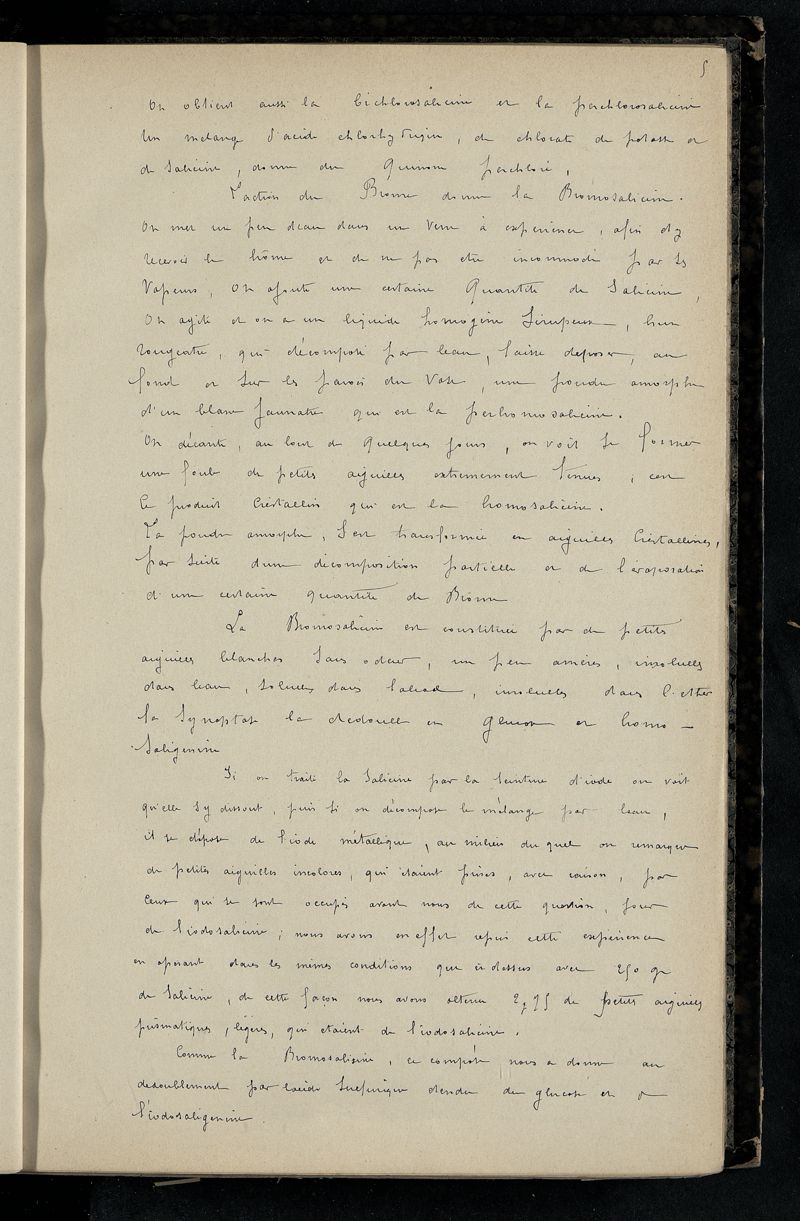 5
On obtient aussi la bichlorosalicine et la perchlorosalicine
Un melange d'acide chlorhydrique, de chlorate de potasse et
de Salicine, donne du Quinone perchloré,
L'action du Brome donne la Bromosalicine.
On met un peu deau dans un Verre à experience, afin d'y
recevoir le brôme et de ne pas etre incommodé par les
Vapeurs, on ajoute une certaine Quantité de Salicine,
On agite et on a un liquide homogène Sirupeux, brun
rougeatre, qui décomposé par leau, laisse deposer, au
fond et sur les parois du Vase, une poudre amorphe
d'un blanc Jaunatre qui est la perbromosalicine.
On décante, au bout de quelques jours, on voit se former
une foule de petits aiguilles extremement tenues, cest
le produit Cristallin qui est la bromosalicine.
La poudre amorphe, s'est transformée en aiguilles Cristallines,
par suite d'une décomposition partielle et de l'évaporation
d'une certaine quantité de Brome
La Bromosalicine est constituée par de petites
aiguilles blanches sans odeur, un peu amères, insolubles
dans leau, Solubles dans lalcool, insolubles dans l'ether
la Synaptase la dedouble en glucose et bromo -
Saligenine
Si on traite la Salicine par la teinture d'iode on voit
qu'elle s'y dissout, puis si on décompose le mélange par leau,
il se dépose de l'iode métallique, au milieu duquel on remarque
de petites aiguilles incolores, qui étaient prises, avec raison, par
Ceux qui se sont occupés avant nous de cette question, pour
de l'iodosalicine; nous avons en effet repris cette experience
en operant dans les mêmes conditions que ci dessus avec 250 gr
de Salicine, de cette façon nous avons obtenu 2,95 de petites aiguilles
prismatiques, légères, qui etaient de l'iodosalicine.
Comme la Bromosalicine, ce composé, nous a donné au
dedoublement par lacide Sulfurique etendu du glucose et de
l'iodosaligenine.